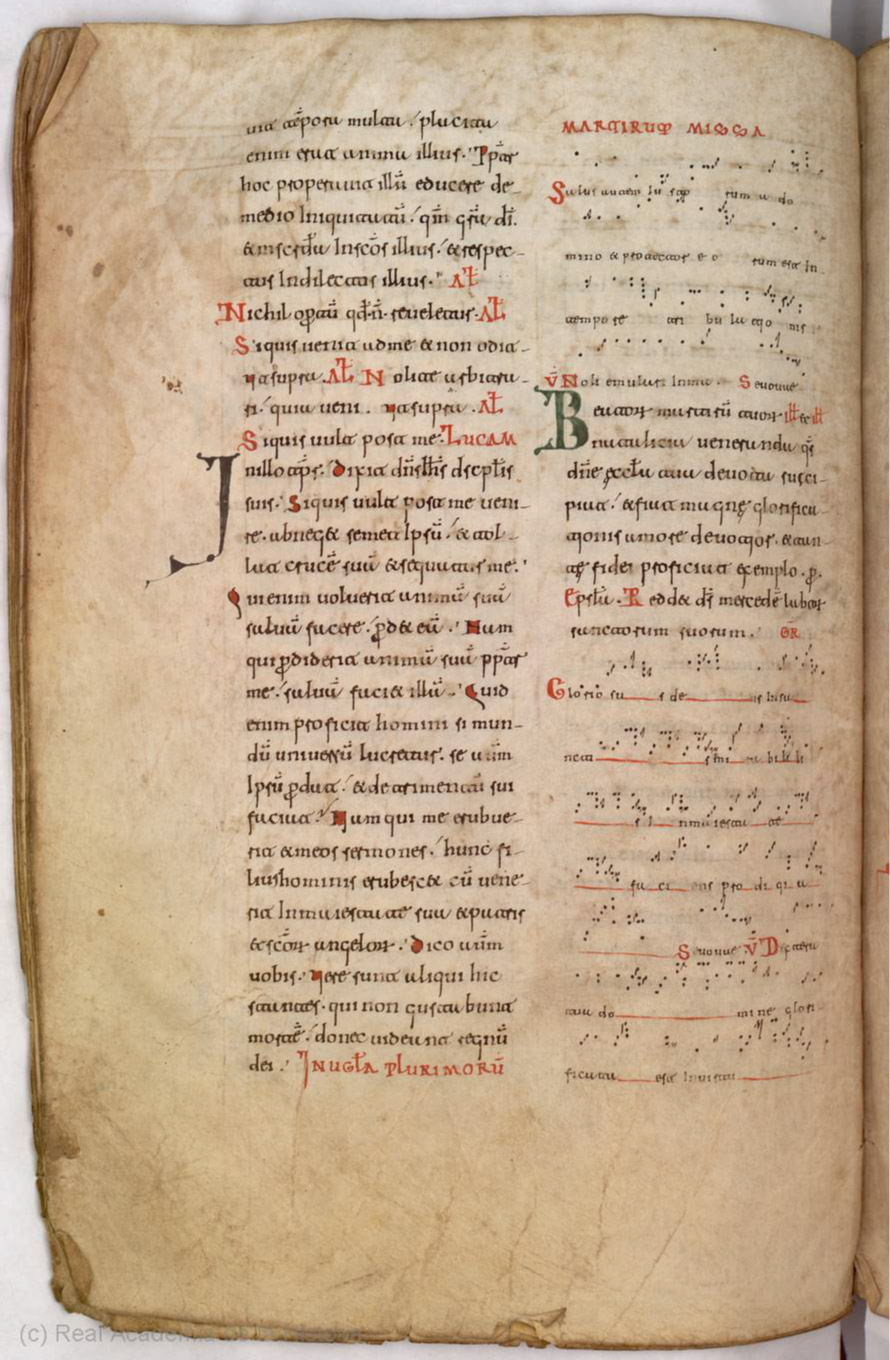 uit tēpora multa. placita
enim erat anima illius. Pp̄ter
hoc properauit illū educere de
medio iniquitatū. qm̄ gr̄a dī.
& misc̄da in sc̄os illius. & respec
tus in dilectos illius. Al̄t
Nichil op̄tū qd̄. n̄. reueletur. Al̄t
Siquis uenit ad me & non odit
ra supra. Al̄t Nolite arbitra
ri. quia ueni. ra supra. Al̄t
Siquis uult post me. LUCAM
In illo tp̄s. Dixit dn̄s ih̄s dscpl̄is
suis. Siquis uult post me ueni
re. abneg& semet ipsū. & tol
lat crucē suā & sequatur me.
Qui enim uoluerit animā suā
saluā facere. pd& eā. Nam
qui pdiderit animā suā pp̄ter
me. saluā faci& illā. Quid
enim proficit homini si mun
dū uniuersū lucretur. se aūm
ipsū pdat. & detrimentū sui
faciat. Nam qui me erubue
rit & meos sermones. hunc fi
lius hominis erubesc& cū uene
rit in maiestate sua & patris
& sc̄or angelor. Dico aūm
uobis. uere sunt aliqui hic
stantes. qui non gustabunt
mortē. donec uideant regnū
dei. IN UGL̄A PLURIMORŪ
MARTIRUM MISSA
Salus autem iustorum a do
mino & protector eorum est in
tempore tribulationis
V̄ Noli emulari in ma. Seuouae
Beatorū martirū tuor ill̄ & ill̄
nataliciā ueneranda qs̄
dn̄e eccl̄a tua deuota susci
piat. & fiat magne glorifica
tionis amore deuotior. & tan
te fidei proficiat exemplo. p̄.
Epsl̄a. Redd& ds̄ mercedē labor
sanctorum suorum. GR̄
Gloriosus deus in sa
nctis mirabilis
in maiestate
faciens prodigia
Seuouae V̄ Dextera
tua domine glori
ficata est in uirtu
(c) Real Academia